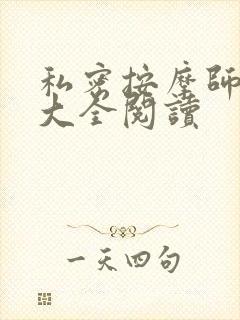 私密按摩師
大全閱讀
一天四句